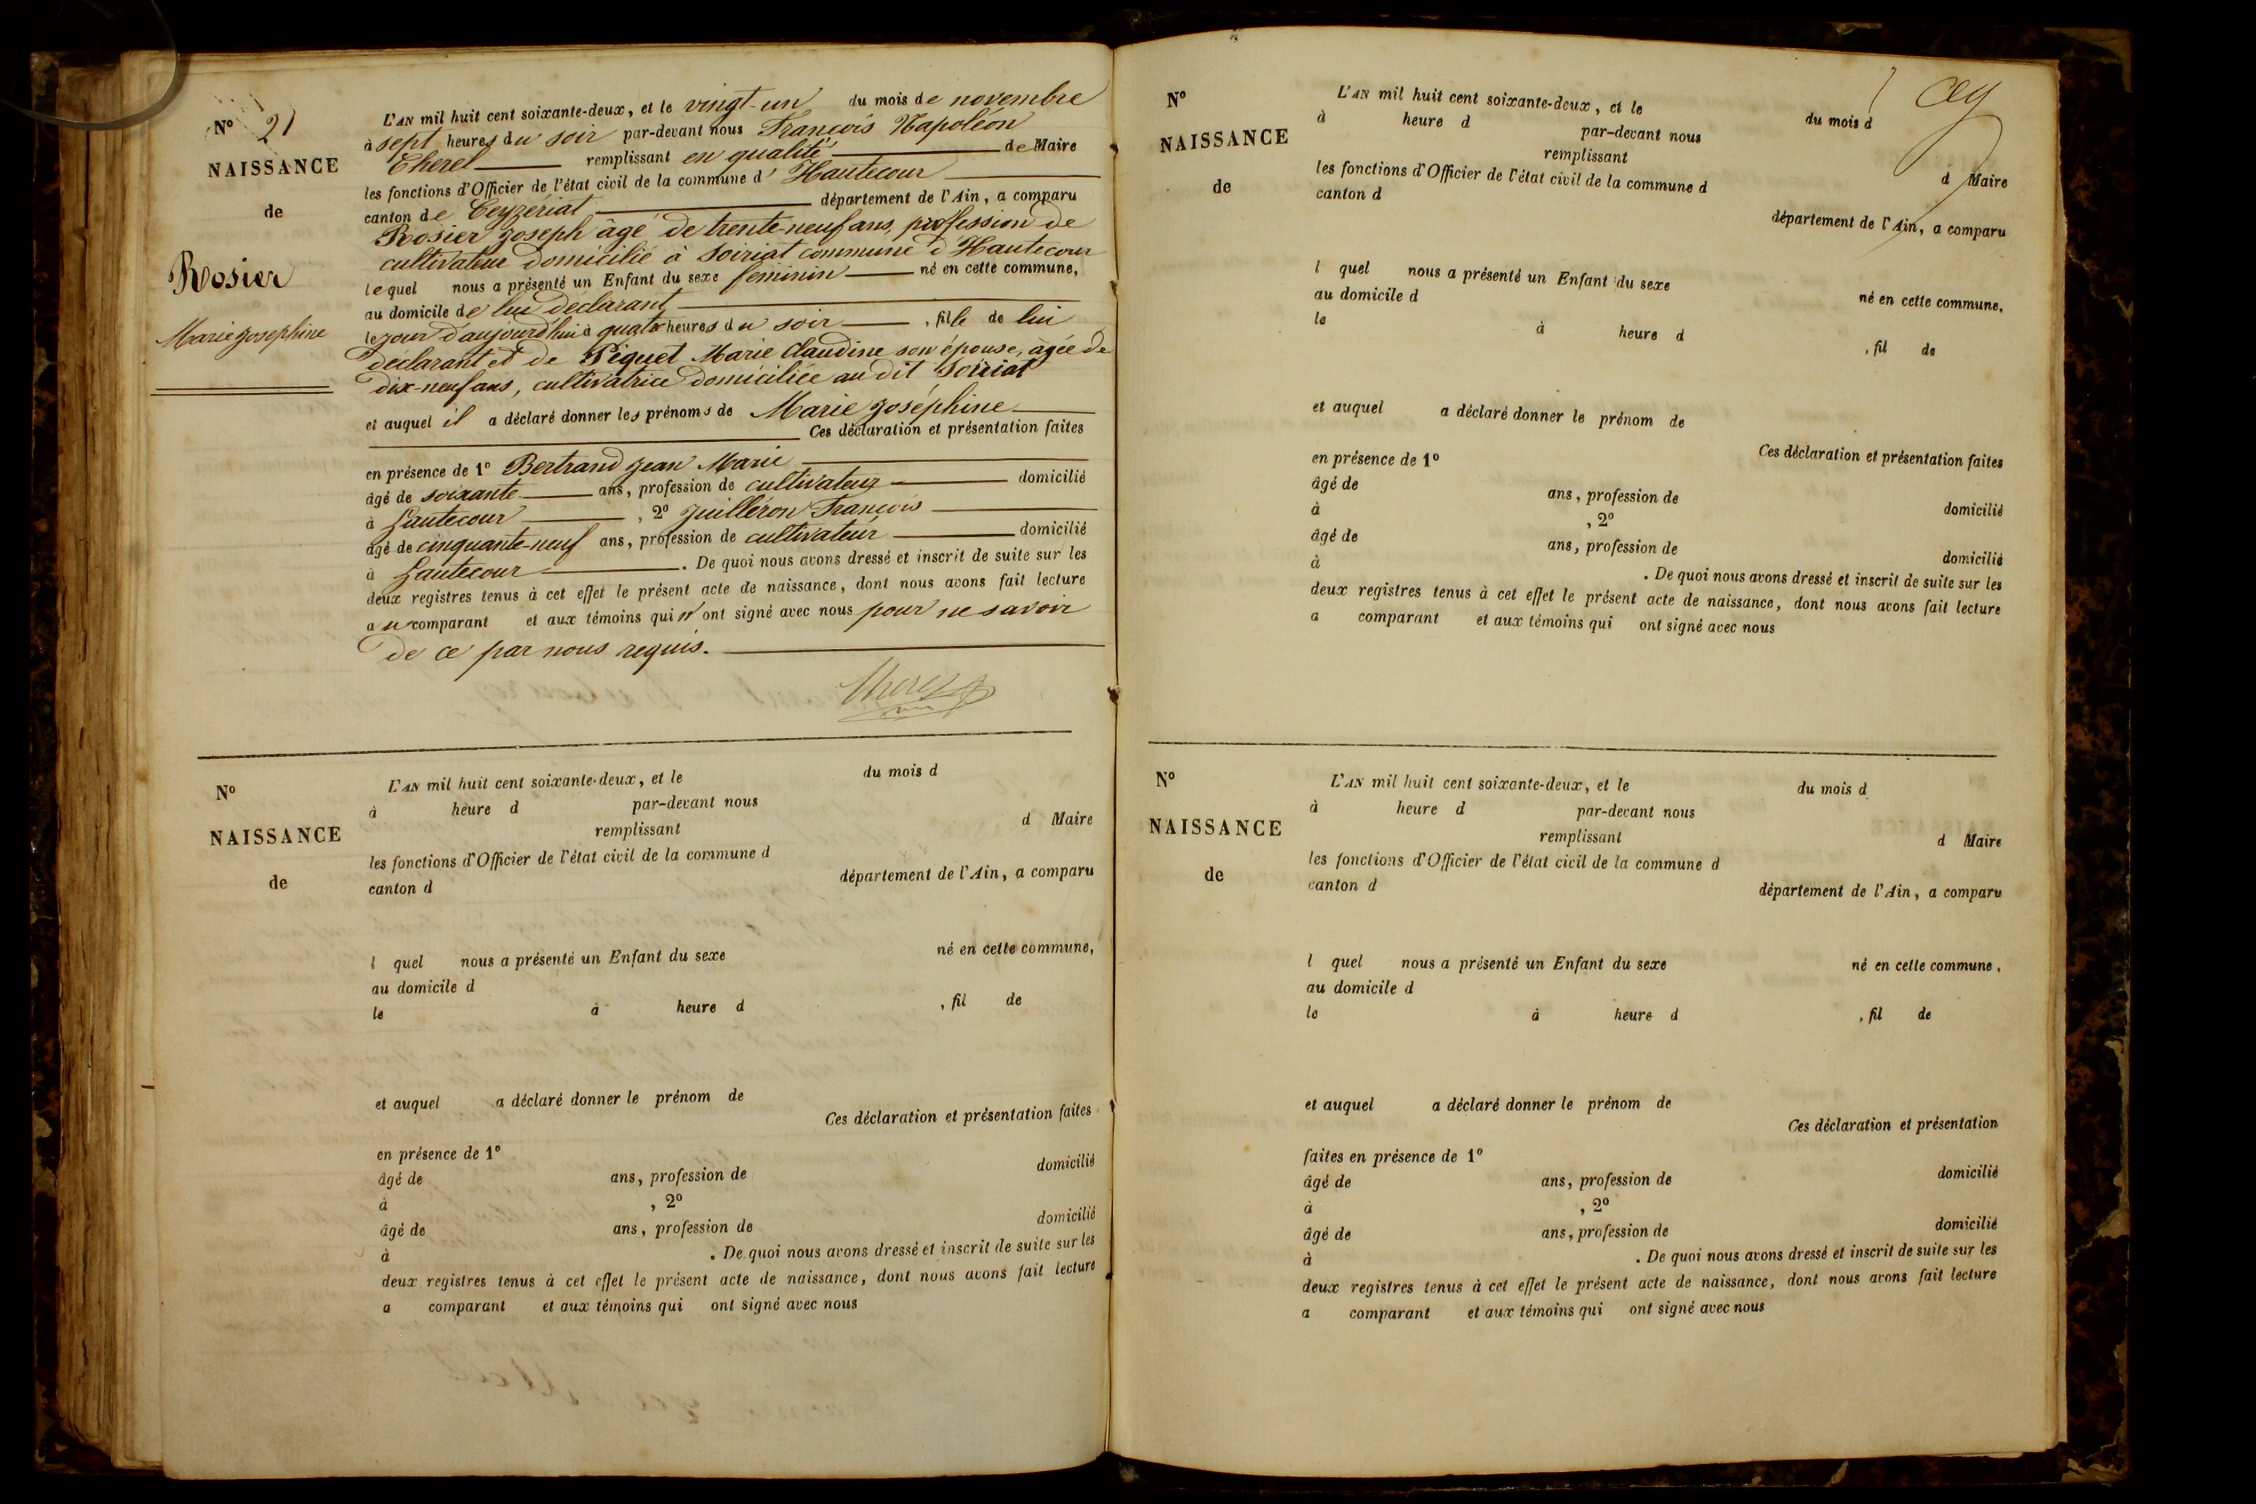 Nº 21
NAISSANCE
de
Rosier
Marie Joséphine
L'AN mil huit cent soixante-deux, et le vingt-un du mois de novembre
à sept heures du soir par-devant nous François Napoléon
Cherel remplissant en qualité de Maire
les fonctions d'Officier de l'état civil de la commune d' Hautecour
canton de Ceyzériat département de l'Ain, a comparu
Rosier Joseph âgé de trente-neuf ans, proffession de
cultivateur domicilié à Soiriat commune d'Hautecour
lequel nous a présenté un Enfant du sexe féminin né en cette commune,
au domicile de lui déclarant
le jour d'aujourd'hui à quatre heures du soir , fille de lui
déclarant et de Piquet Marie Claudine son épouse, âgée de
dix-neuf ans, cultivatrice domiciliée au dit Soiriat
et auquel il a déclaré donner les prénoms de Marie Joséphine
Ces déclaration et présentation faites
en présence de 1º Bertrand Jean Marie
âgé de soixante ans, profession de cultivateur domicilié
à hautecour , 2º Juilléron François
âgé de cinquante-neuf ans, profession de cultivateur domicilié
à hautecour . De quoi nous avons dressé et inscrit de suite sur les
deux registres tenus à cet effet le présent acte de naissance, dont nous avons fait lecture
au comparant et aux témoins qui n'ont signé avec nous pour ne savoir
de ce par nous requis.
Cherel
Nº
NAISSANCE
de
L'AN mil huit cent soixante-deux, et le du mois d
à heure d par-devant nous
remplissant d Maire
les fonctions d'Officier de l'état civil de la commune d
canton d département de l'Ain, a comparu
l quel nous a présenté un Enfant du sexe né en cette commune,
au domicile d
le à heure d , fil de
et auquel a déclaré donner le prénom de
Ces déclaration et présentation faites
en présence de 1º
âgé de ans, profession de domicilié
à , 2º
âgé de ans, profession de domicilié
à . De quoi nous avons dressé et inscrit de suite sur les
deux registres tenus à cet effet le présent acte de naissance, dont nous avons fait lecture
a comparant et aux témoins qui ont signé avec nous
Nº
NAISSANCE
de
L'AN mil huit cent soixante-deux, et le du mois d
à heure d par-devant nous
remplissant d Maire
les fonctions d'Officier de l'état civil de la commune d
canton d département de l'Ain, a comparu
l quel nous a présenté un Enfant du sexe né en cette commune,
au domicile d
le à heure d , fil de
et auquel a déclaré donner le prénom de
Ces déclaration et présentation faites
en présence de 1º
âgé de ans, profession de domicilié
à , 2º
âgé de ans, profession de domicilié
à . De quoi nous avons dressé et inscrit de suite sur les
deux registres tenus à cet effet le présent acte de naissance, dont nous avons fait lecture
a comparant et aux témoins qui ont signé avec nous
Nº
NAISSANCE
de
L'AN mil huit cent soixante-deux, et le du mois d
à heure d par-devant nous
remplissant d Maire
les fonctions d'Officier de l'état civil de la commune d
canton d département de l'Ain, a comparu
l quel nous a présenté un Enfant du sexe né en cette commune,
au domicile d
le à heure d , fil de
et auquel a déclaré donner le prénom de
Ces déclaration et présentation
faites en présence de 1º
âgé de ans, profession de domicilié
à , 2º
âgé de ans, profession de domicilié
à . De quoi nous avons dressé et inscrit de suite sur les
deux registres tenus à cet effet le présent acte de naissance, dont nous avons fait lecture
a comparant et aux témoins qui ont signé avec nous